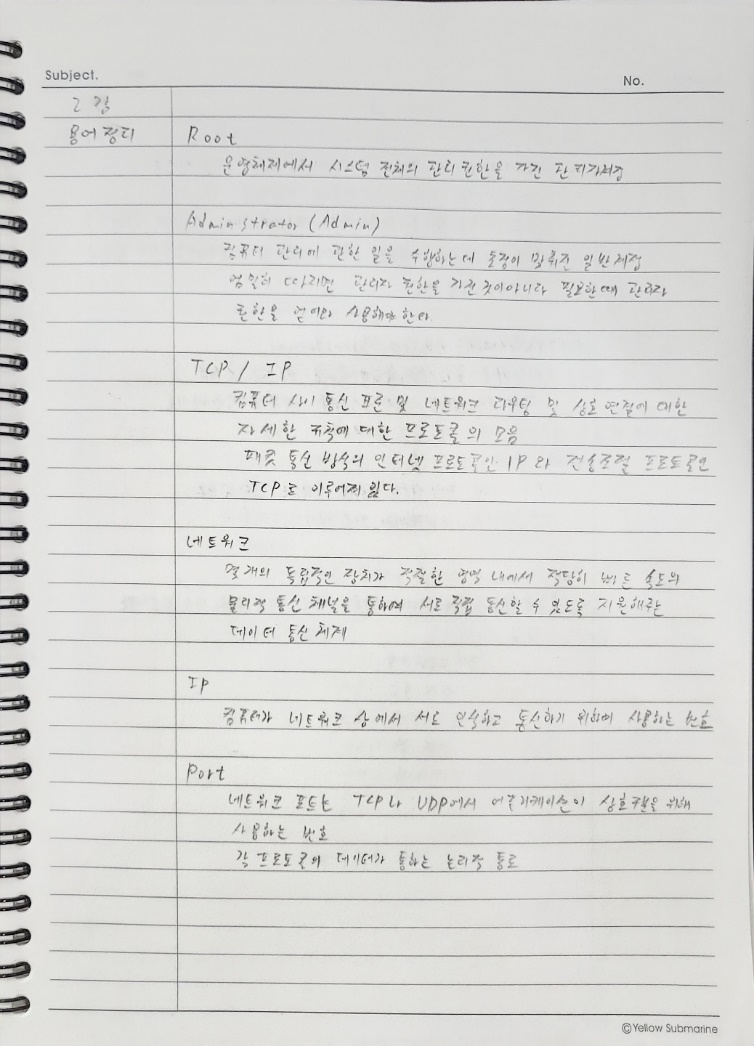 Subject.
No.
2장
용어정리
Root
운영체제에서 시스템 전체의 관리 권한을 가진 관리자계정
Administrator (Admin)
컴퓨터 관리에 관한 일을 수행하는데 초점이 맞춰진 일반계정
엄밀히 따지면 관리자 권한을 가진것이아니다 필요한때 관리자
권한을 얻어와 사용해야한다.
TCP / IP
컴퓨터 사이 통신 표준 및 네트워크 라우팅 및 상호 연결에 대한
자세한 규칙에 대한 프로토콜의 모음
패킷 통신 방식의 인터넷 프로토콜인 IP와 전송조절 프로토콜인
TCP로 이루어져 있다.
네트워크
몇개의 독립적인 장치가 적절한 영역 내에서 적당히 빠른 속도의
물리적 통신 채널을 통하여 서로 직접 통신할 수 있도록 지원해주는
데이터 통신 체계
IP
컴퓨터가 네트워크 상에서 서로 인식하고 통신하기 위하여 사용하는 번호
Port
네트워크 포트는 TCP나 UDP에서 어플리케이션이 상호구분을 위해
사용하는 번호
각 프로토콜의 데이터가 통하는 논리적 통로
©Yellow Submarine